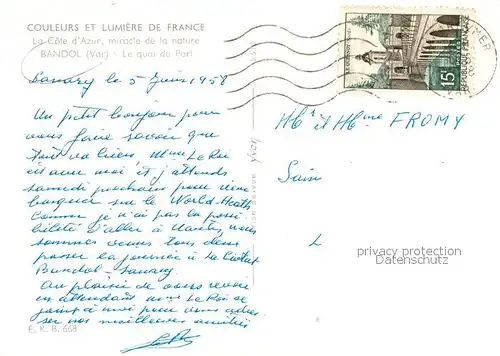 COULEURS ET LUMIÈRE DE FRANCE
La Côte d'Azur, miracle de la nature
BANDOL (Var) - Le quai du Port
Sanary le 5 Juin 1958
Un petit bonjour pour
vous faire savoir que
tout va bien. Mme Le Roi
est avec moi et j'attends
samedi prochain pour
sur le World-
Comme je n'ai pas la possi
bilité d'aller à nous
sommes venus tous deux
passer la journée à La Ciotat
Bandol - Sanary.
Au plaisir de vous revoir
en attendant Mme Le Roi se
joint à moi pour vous adres
ser nos meilleures amitiés
E. K. B. 668
15F
POSTES
REPUBLIQUE FRANÇAISE
MER
Mr et Mme FROMY
privacy protection
DATENSCHUTZ